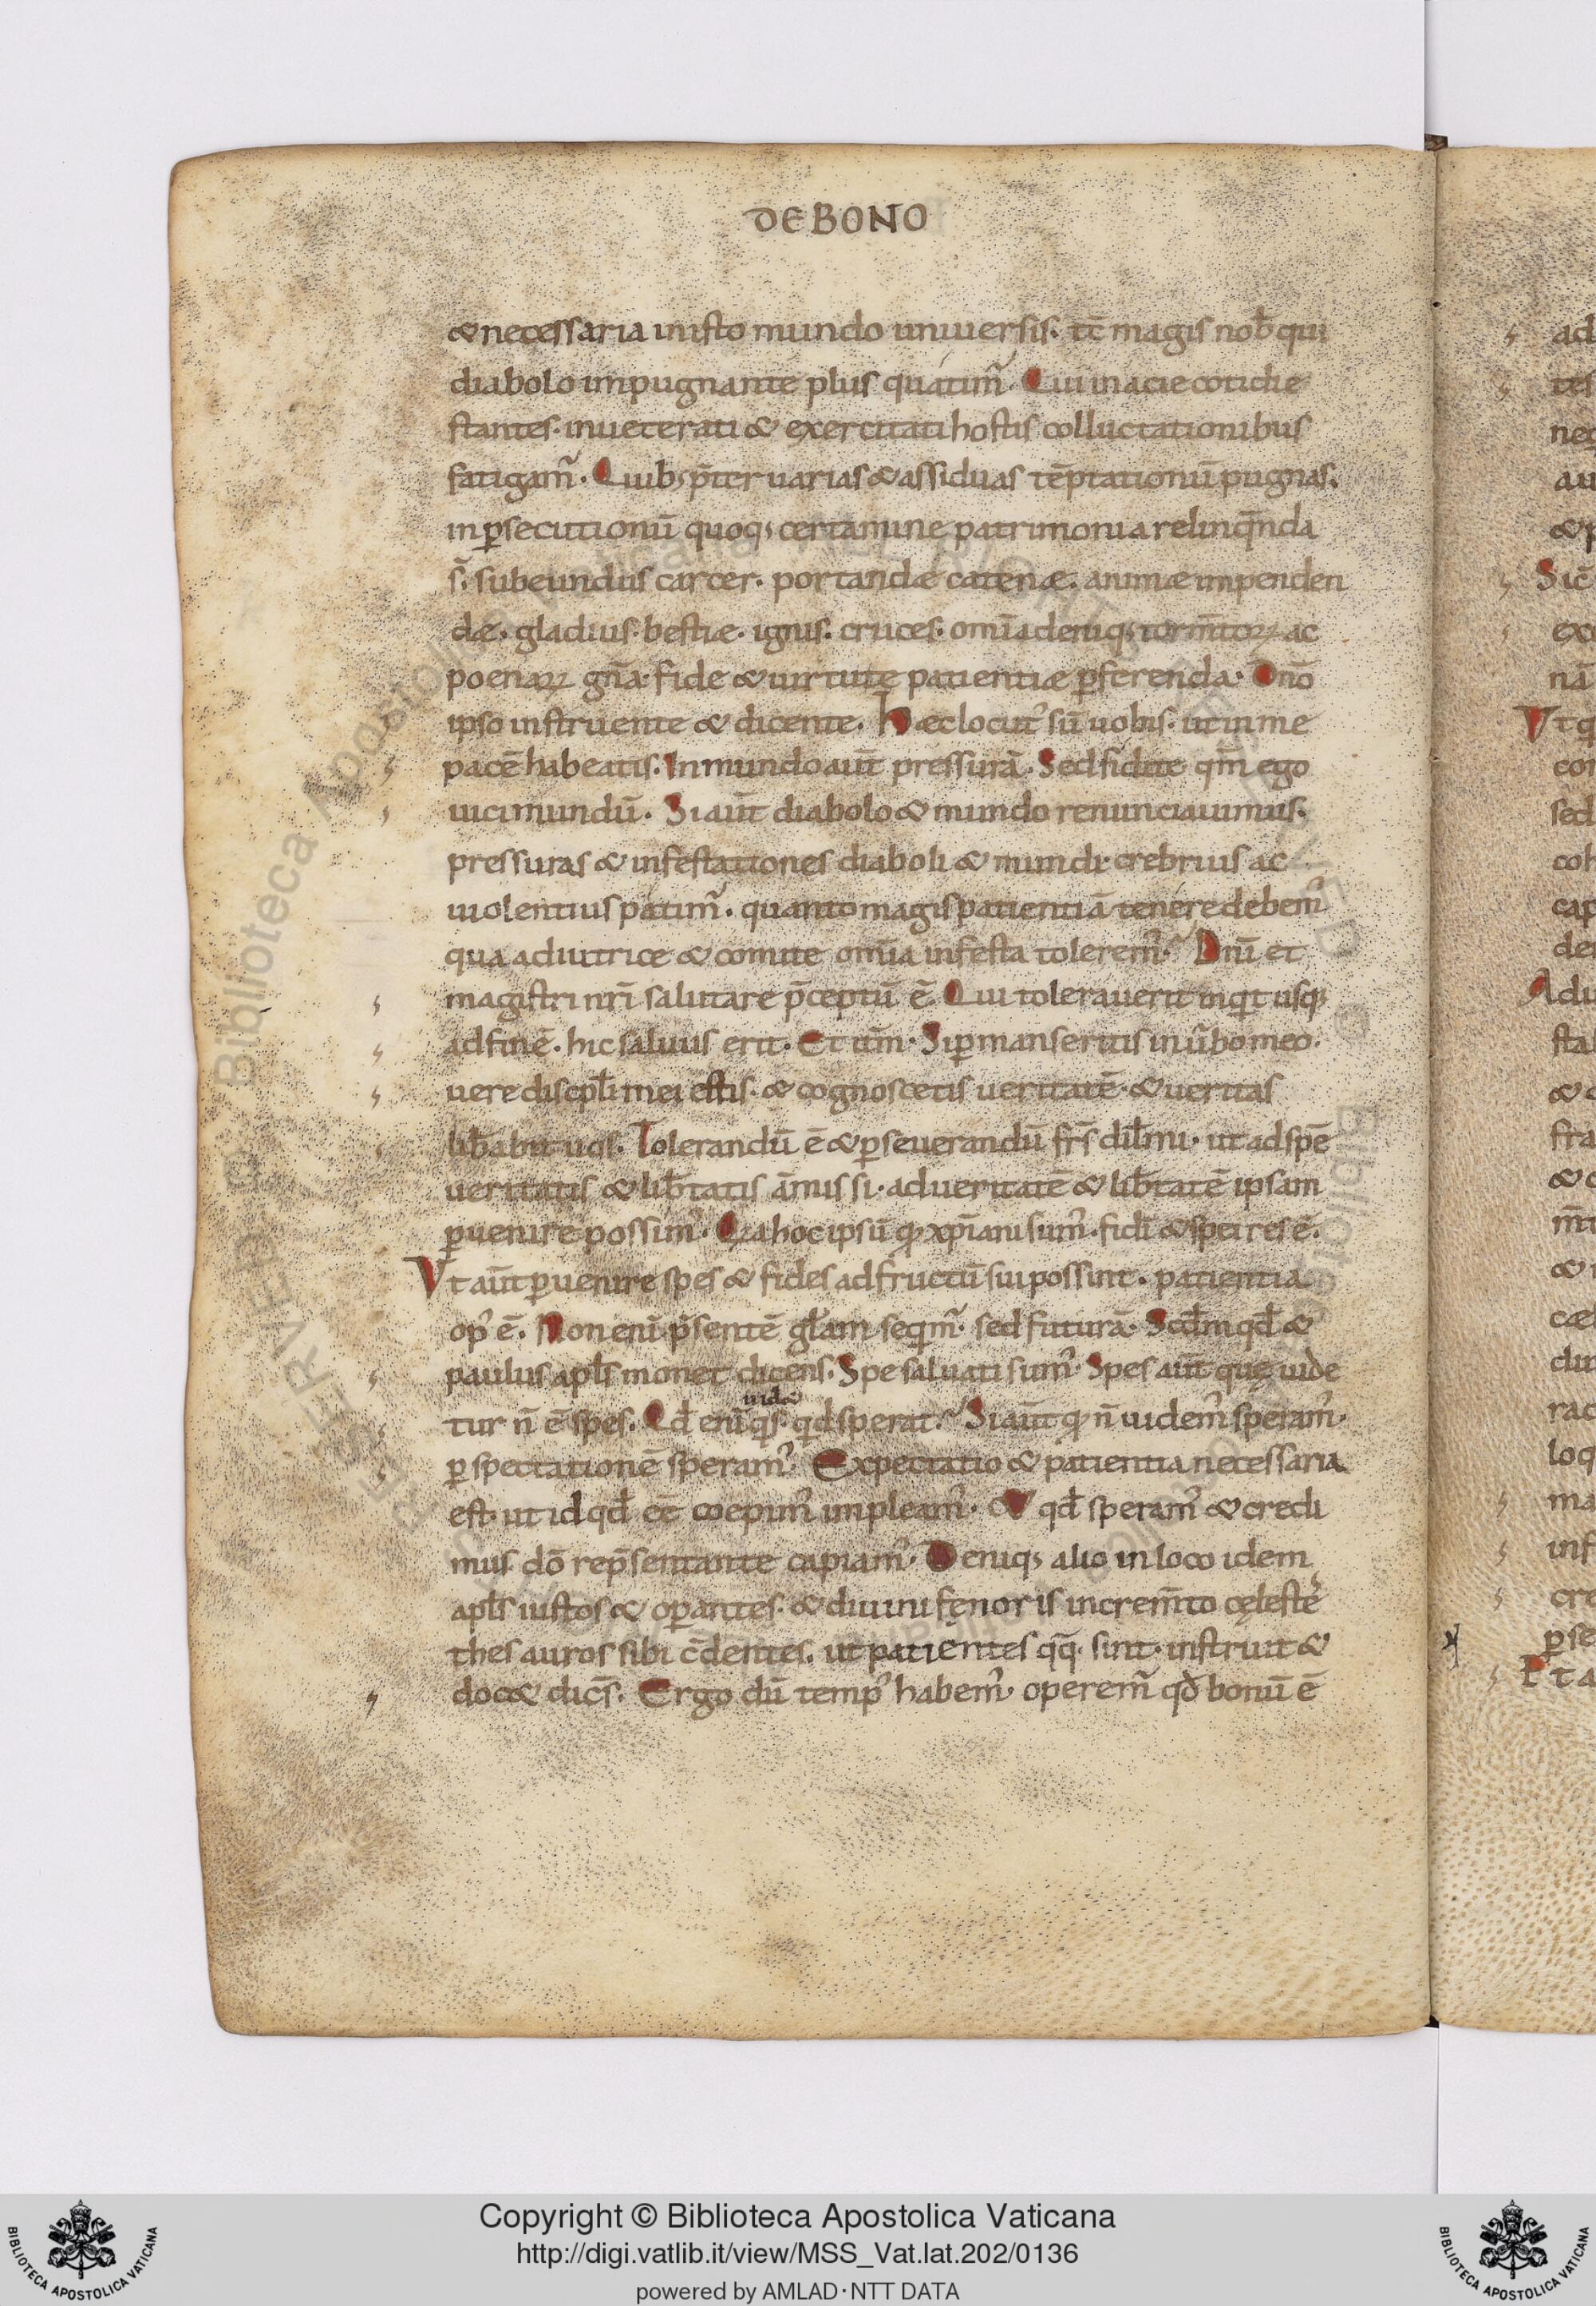 DE BONO
& necessaria in isto mundo uniuersis. tc̄ magis nob̄ qui
diabolo impugnante plus quatim̄. Qui in acie cotidie
stantes. inueterati & exercitati hostis colluctationibus
fatigam̄. Quib; p̄ter uarias & assiduas tēptationū pugnas.
in ꝑsecutionū quoq; certamine patrimonia relinq̄nda
s̄. subeundus carcer. portandæ catenæ. animæ impenden
dæ. gladius. bestiæ. ignis. cruces. omīa deniq; torm̄toꝝ ac
poenaꝝ gn̄a. fide & uirtute patientiæ ꝑferenda. Dn̄o
ipso instruente & dicente. Hæc locut᾽ sū uobis. ut in me
pacē habeatis. In mundo aūt pressurā. Sed fidite qm̄ ego
uici mundū. Si aūt diabolo & mundo renunciauimus.
pressuras & infestationes diaboli & mundi crebrius ac
uiolentius patim̄. quanto magis patientiā tenere debem᾽
qua adiutrice & comite omīa infesta tolerem᾽. Dn̄i et
magistri nr̄i salutare p̄ceptū ē. Qui tolerauerit inqt usq;
ad finē. hic saluus erit. Et itm̄. Si ꝑmanseritis in ūbo meo.
uere discipl̄i mei estis. & cognoscetis ueritatē. & ueritas
lib̄abit uos. Tolerandū ē & ꝑseuerandū fr̄s dil̄mi. ut ad spē
ueritatis & lib̄tatis ām̄issi. ad ueritatē & lib̄tatē ipsam
ꝑuenire possim᾽. Qa hoc ipsū qꝫ xp̄iani sum᾽. fidi & spei res ē.
Vt aūt ꝑuenire spes & fides ad fructū sui possint. patientia
op᾽ ē. Non enī p̄sentē gl̄am seqm̄. sed futurā. Scd̄m qd̄ &
paulus apl̄s monet dicens. Spe saluati sum᾽. Spes aūt quę uide
uid&
tur n̄ ē spes. Qd̄ enī qs. qd sperat. Si aūt qꝫ n̄ uidem᾽ speram᾽.
ꝑ spectationē speram᾽. Expectatio & patientia necessaria
est. ut id qd̄ eē coepim᾽ impleam᾽. & qd̄ speram᾽ & credi
mus. dō rep̄sentante capiam᾽. Deniq; alio in loco idem
apl̄s iustos & oꝑantes. & diuini fenoris increm̄to cęlestes
thesauros sibi c̄dentes. ut patientes qq̄. sint. instruit &
doc& dicēs. Ergo dū temp᾽ habem᾽ operem̄ qd̄ bonū ē
Copyright © Biblioteca Apostolica Vaticana
http://digi.vatlib.it/view/MSS_Vat.lat.202/0136
powered by AMLAD·NTT DATA